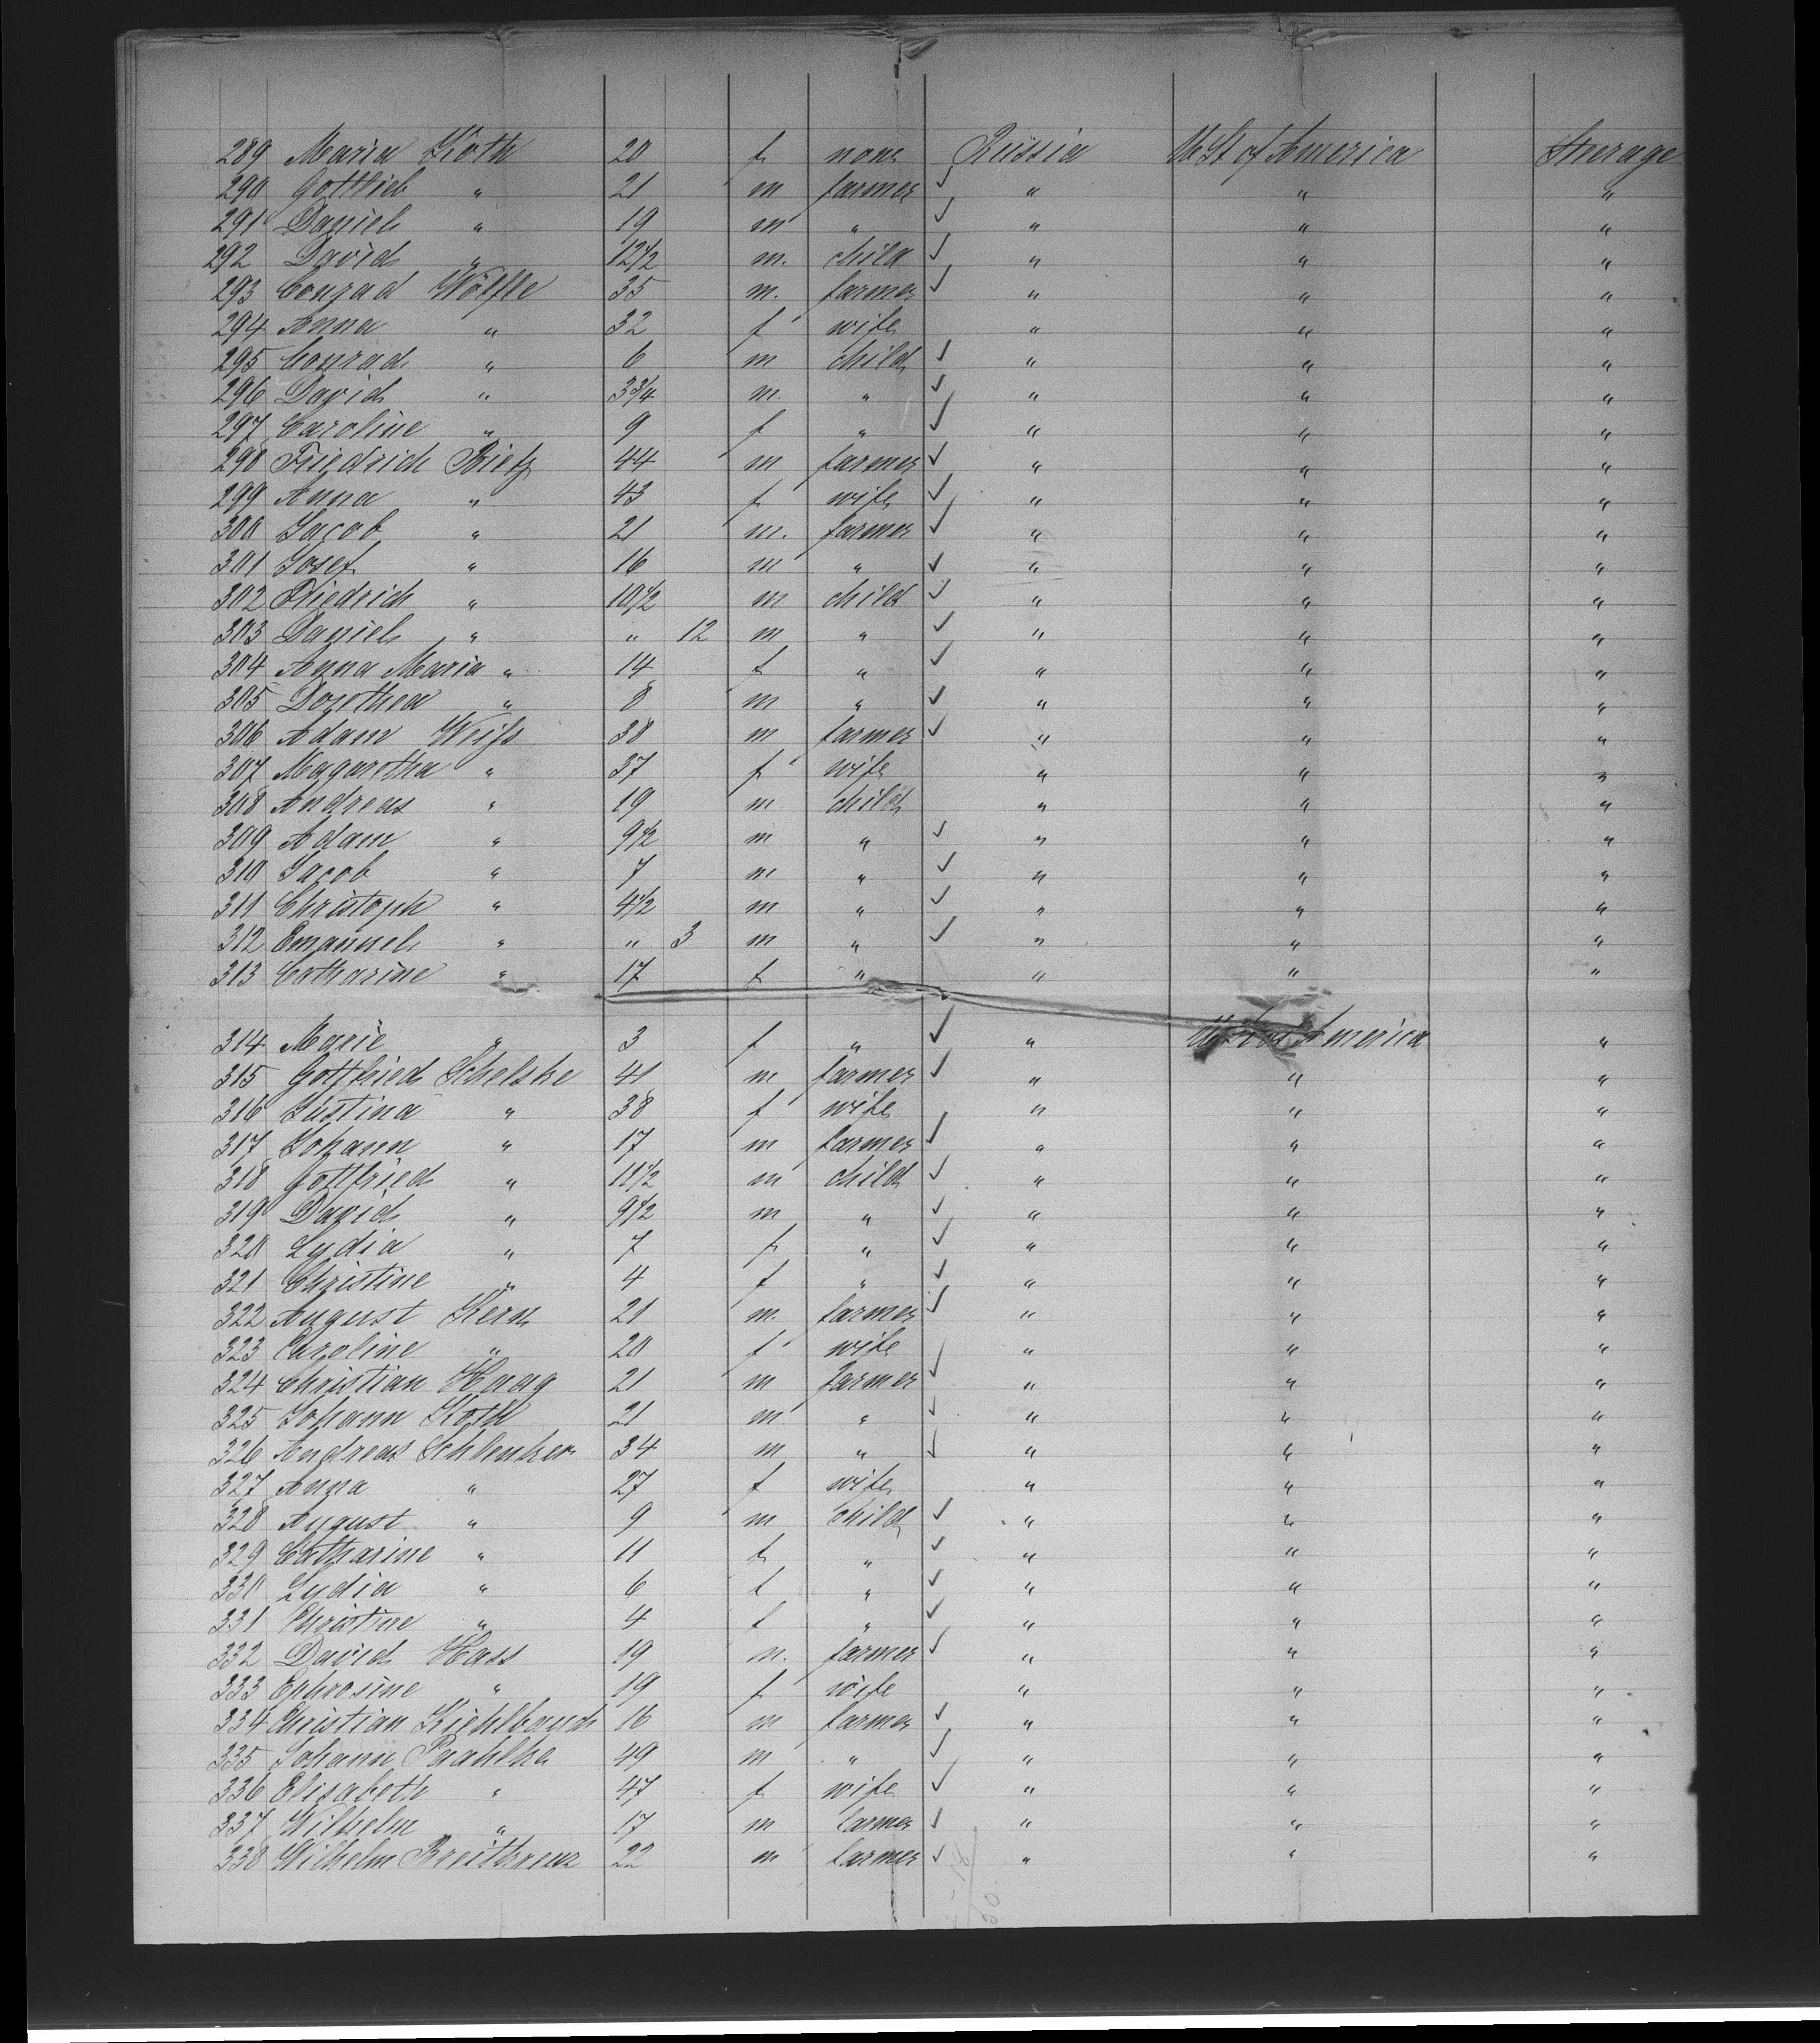 289 Maria Köth 20 f none Russia U St of America Steerage
290 Gottlieb " 21 m farmer ✓ " " "
291 Daniel " 19 m " ✓ " " "
292 David " 12 1/2 m. child ✓ " " "
293 Conrad Wölfle 35 m. farmer ✓ " " "
294 Anna " 32 f wife " " "
295 Conrad " 6 m child ✓ " " "
296 David " 3 3/4 m. " ✓ " " "
297 Caroline " 9 f " ✓ " " "
298 Friedrich Bietz 44 m farmer ✓ " " "
299 Anna " 43 f wife ✓ " " "
300 Jacob " 21 m. farmer ✓ " " "
301 Josef " 16 m " ✓ " " "
302 Friedrich " 10 1/2 m child ✓ " " "
303 Daniel " " 12 m " ✓ " " "
304 Anna Maria " 14 f " ✓ " " "
305 Dorothea " 8 m " ✓ " " "
306 Adam Weiſs 38 m farmer ✓ " " "
307 Magaretha " 37 f wife " " "
308 Andreas " 19 m child " " "
309 Adam " 9 1/2 m " ✓ " " "
310 Jacob " 7 m " ✓ " " "
311 Christoph " 4 1/2 m " ✓ " " "
312 Emanuel " " 3 m " ✓ " " "
313 Catharine " 17 f " " " "
314 Marie " 3 f " ✓ " U St of America "
315 Gottfried Schelske 41 m farmer ✓ " " "
316 Justina " 38 f wife " " "
317 Johann " 17 m farmer ✓ " " "
318 Gottfried " 11 1/2 m child ✓ " " "
319 David " 9 1/2 m " ✓ " " "
320 Lydia " 7 f " ✓ " " "
321 Christine " 4 f " ✓ " " "
322 August Kern 21 m. farmer ✓ " " "
323 Caroline " 20 f wife " " "
324 Christian Haag 21 m farmer ✓ " " "
325 Johann Koth 21 m " ✓ " " "
326 Andreas Schlenker 34 m " ✓ " " "
327 Anna " 27 f wife " " "
328 August " 9 m child ✓ " " "
329 Catharine " 11 f " ✓ " " "
330 Lydia " 6 f " ✓ " " "
331 Christine " 4 f " ✓ " " "
332 David Hass 19 m. farmer ✓ " " "
333 Ephrosine " 19 f wife " " "
334 Christian Kiehlbauch 16 m farmer ✓ " " "
335 Johann Paahlke 49 m " ✓ " " "
336 Elisabeth " 47 f wife ✓ " " "
337 Wilhelm " 17 m farmer ✓ " " "
338 Wilhelm Breitkreuz 22 m farmer ✓ " " "